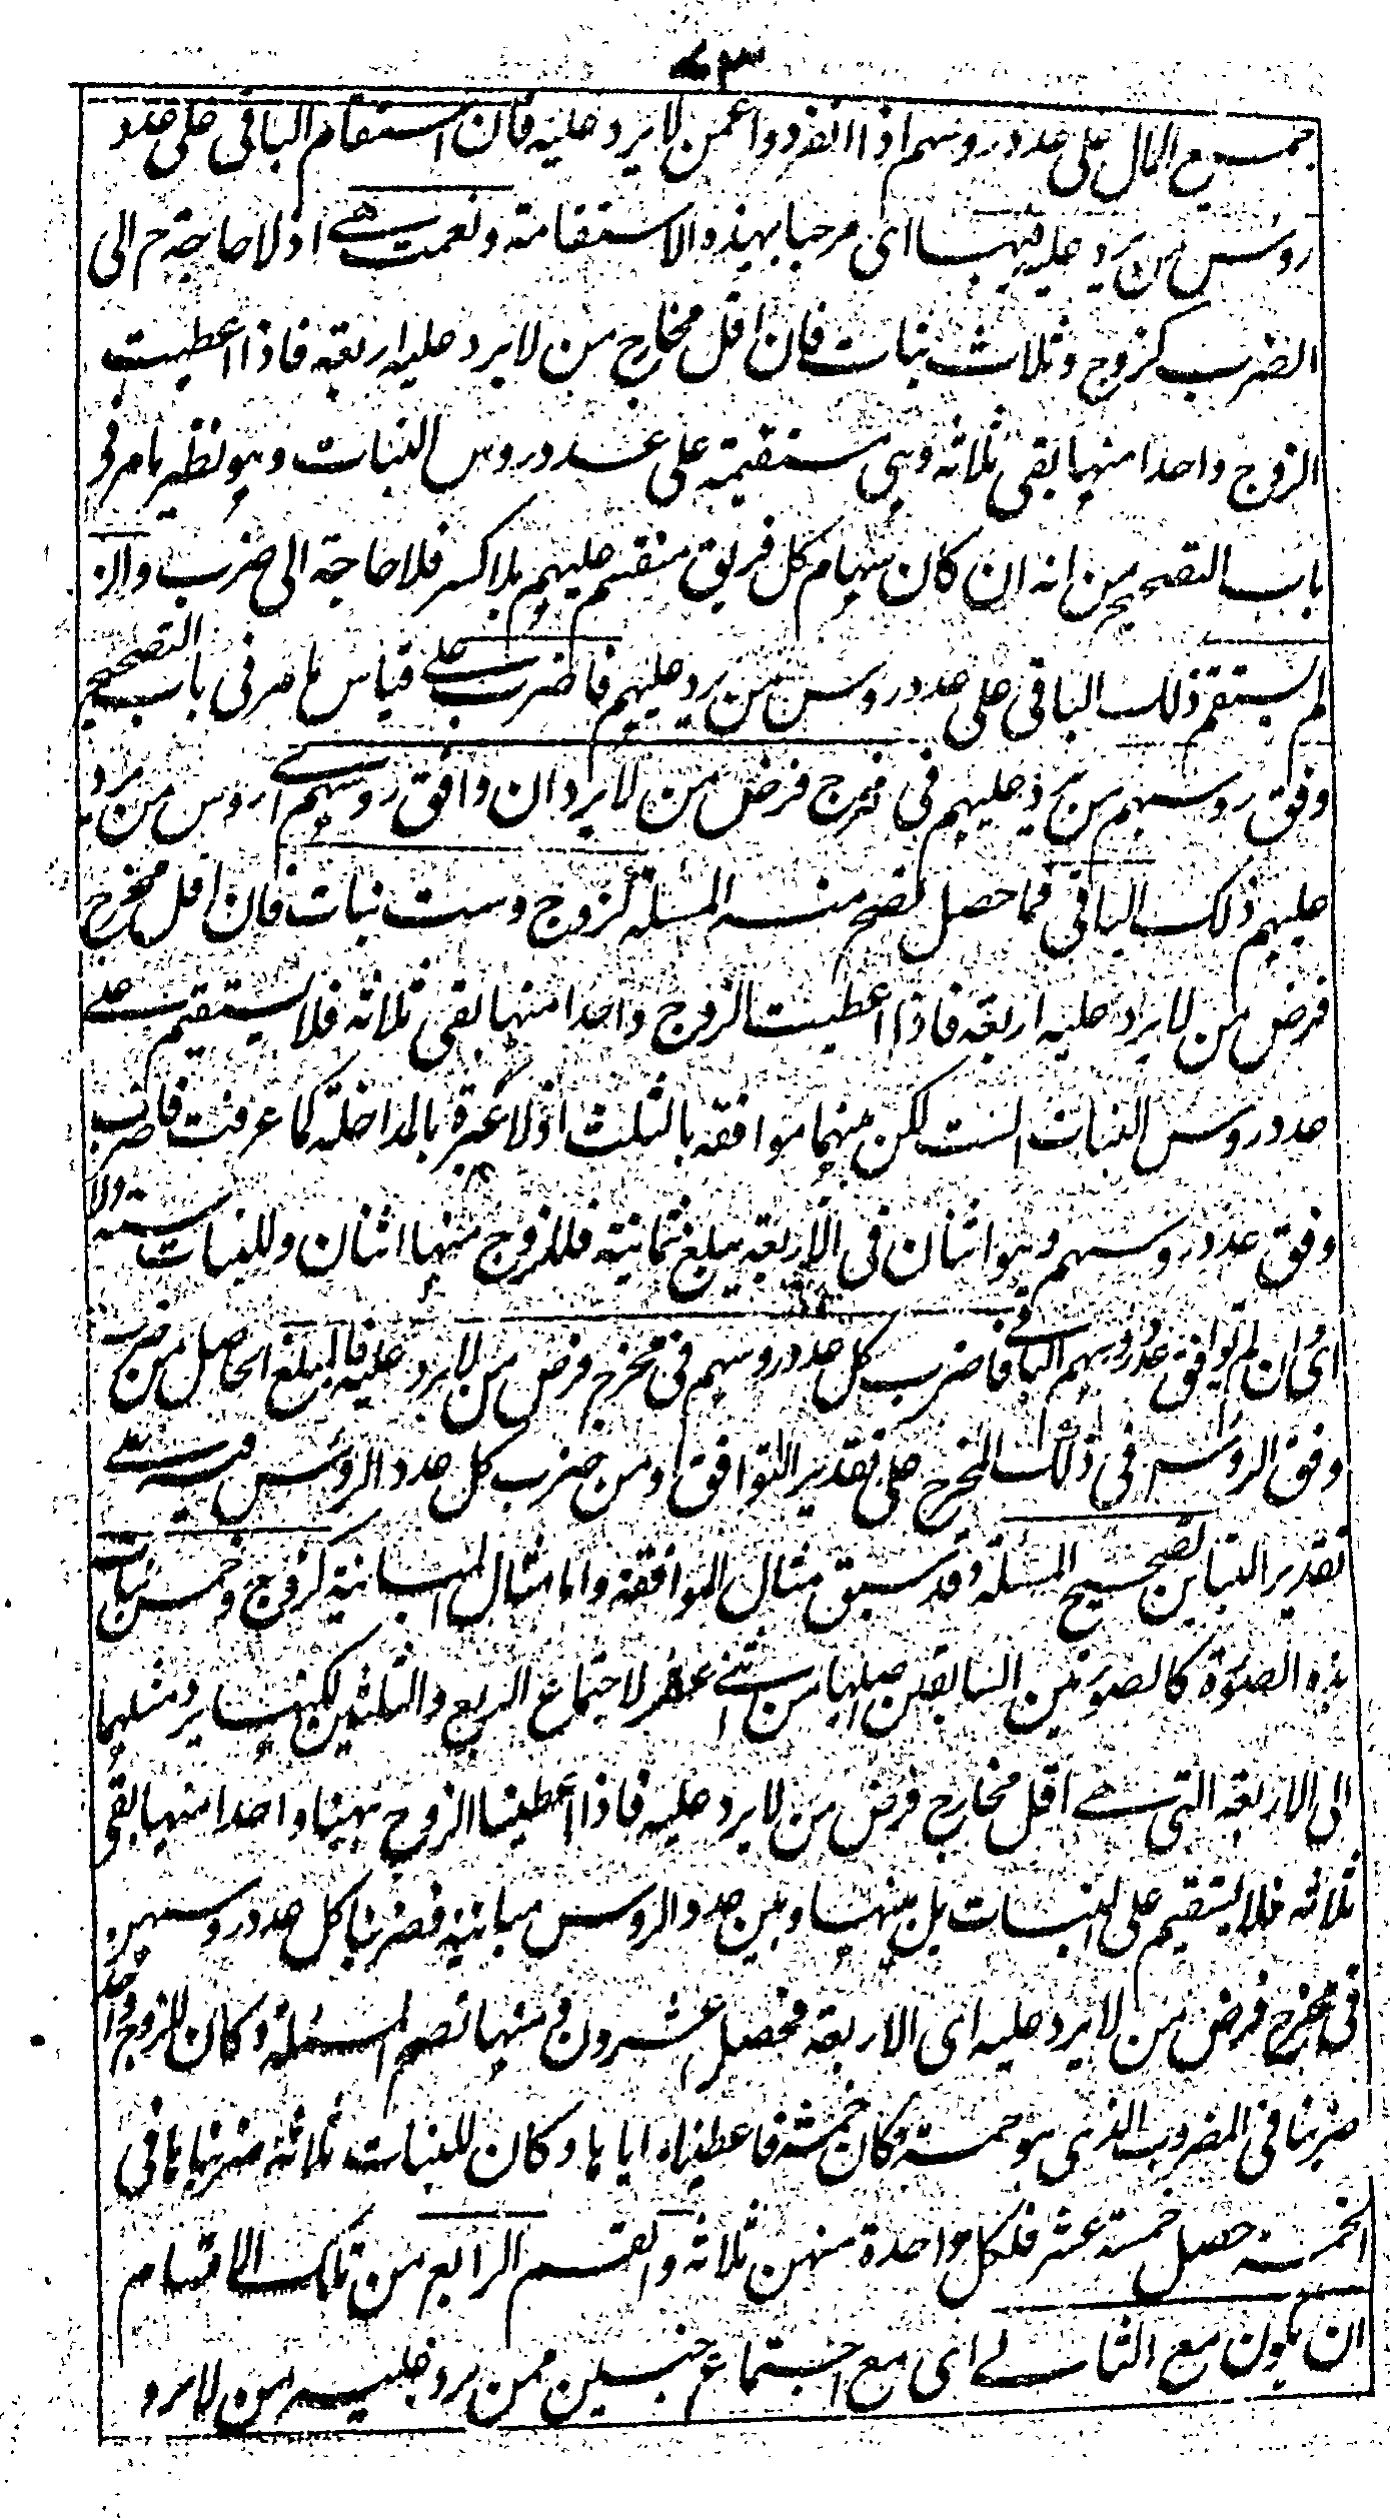 ٧٣
جميع المال على عدد روسهم اذا انفردوا عمن لا يرد عليه فان استقام الباقى على عدد
روس من يرد عليه فبها اى مرحبا بهذه الاستقامة ونعمت هے اذ لا حاجة ح الى
الضرب كزوج وثلاث بنات فان اقل مخارج من لا يرد عليه اربعة فاذا اعطيت
الزوج واحدا منها بقى ثلاثة وهى مستقيمة على عدد روس البنات وهو نظير ما مر فى
باب التصحيح من انه ان كان سهام كل فريق منقسم عليهم بلا كسر فلا حاجة الى ضرب وان
لم يستقم ذلك الباقى على عدد روس من يرد عليهم فاضرب علے قياس ما مر فى باب التصحيح
وفق روسهم من يرد عليهم فى مخرج فرض من لا يرد ان وافق روسهم اے روس من يرد
عليهم ذلك الباقى فما حصل تصح منه المسئلة كزوج وست بنات فان اقل مخرج
فرض من لا يرد عليه اربعة فاذا اعطيت الزوج واحدا منها بقى ثلاثة فلا يستقيم علے
عدد روس البنات الست لكن بينهما موافقة بالثلث اذ لا عبرة بالمداخلة كما عرفت فاضرب
وفق عدد روسهم وهو اثنان فى الاربعة يبلغ ثمانية فللزوج منها اثنان وللبنات ستة والا
اى ان لم يوافق عدد روسهم الباقے فاضرب كل عدد روسهم فى مخرج فرض من لا يرد عليه فالمبلغ الحاصل من ضرب
وفق الروس فى ذلك المخرج على تقدير التوافق او من ضرب كل عدد الروس فيه علے
تقدير التباين تصحيح المسئلة وقد سبق مثال الموافقة واما مثال المباينة كزوج وخمس بنات
هذه الصورة كالصورتين السابقتين اصلها من اثنى عشر لاجتماع الربع والثلثين لكنها يرد مثلهما
الى الاربعة التى هے اقل مخارج فرض من لا يرد عليه فاذا اعطينا الزوج ههنا واحدا منها بقى
ثلاثة فلا يستقيم على البنات بل بينها وبين عدد الروس مباينة فضربنا كل عدد روسهن
فى مخرج فرض من لا يرد عليه اى الاربعة فحصل عشرون فمنها تصح المسئلة وكان للزوج واحد
ضربنا فى المضروب الذى هو خمسة فكان خمسة فاعطيناه اياها وكان للبنات ثلاثة ضربناها فى
الخمسة حصل خمسة عشر فلكل واحدة منهن ثلاثة والقسم الرابع من تلك الاقسام
ان يكون مع الثانے اى مع اجتماع جنسين ممن يرد عليه من لا يرد